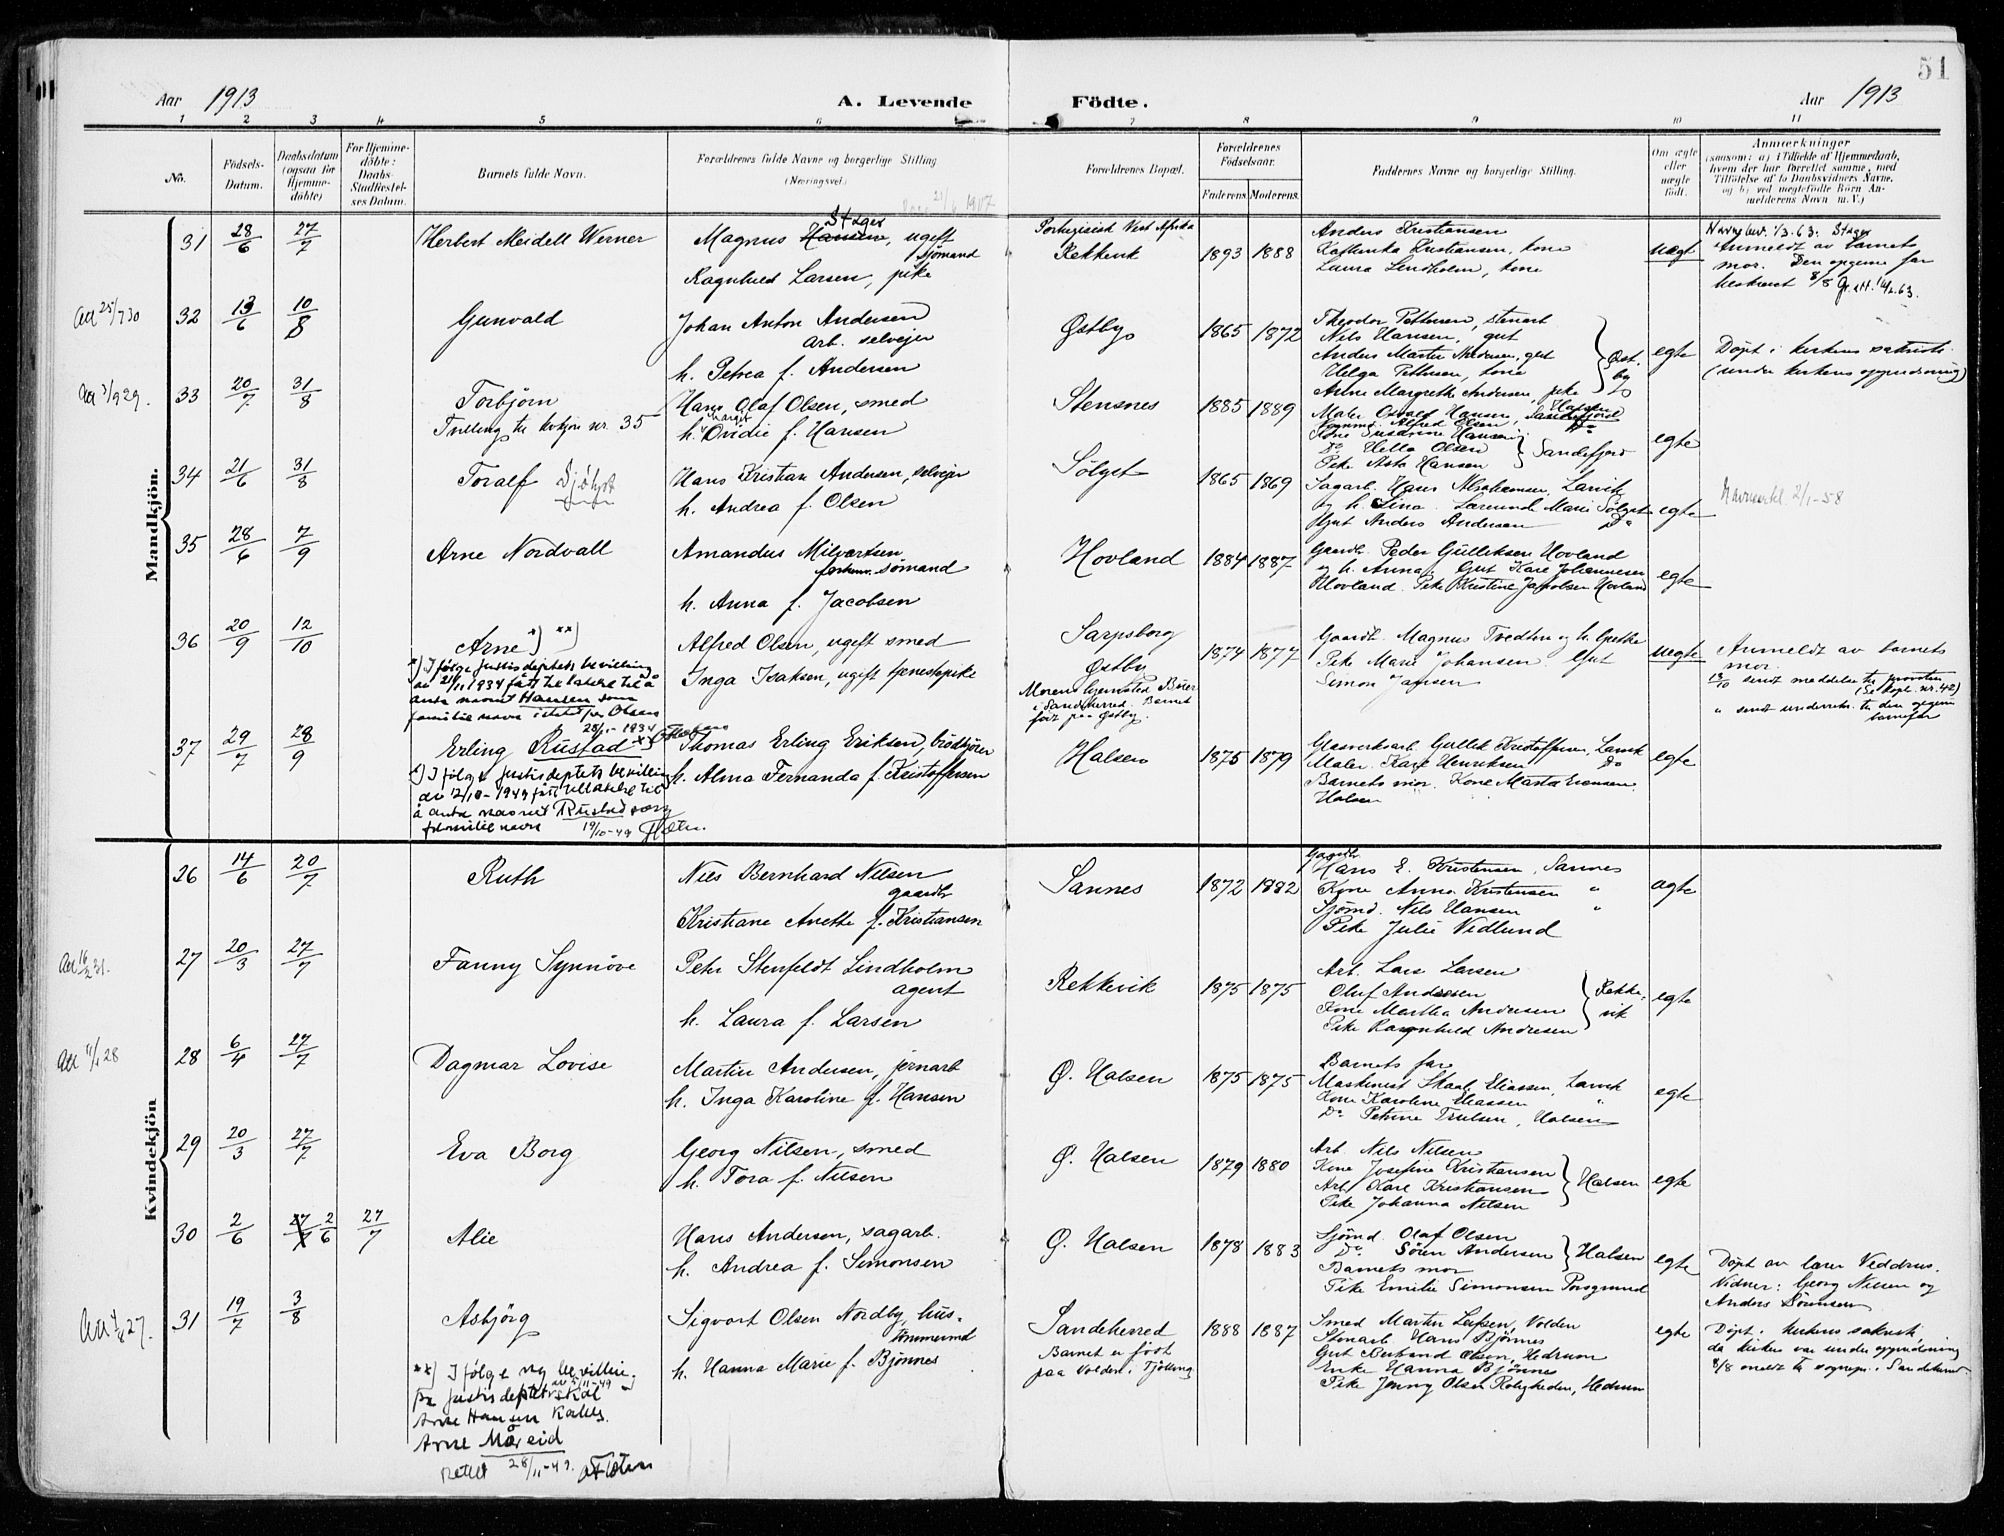 51
Aar 1913 A. Levende Födte. Aar 1913
1 2 3 4 5 6 7 8 9 10 11
No.
Födsels-Datum.
Daabsdatum (ogsaa for Hjemmedöbte)
For Hjemmedöbte: Daabs-Stadfæstelses Datum.
Barnets fulde Navn.
Forældrenes fulde Navne og borgerlige Stilling (Næringsvei.)
Forældrenes Bopæl.
Forældrenes Födselsaar.
Faderens. Moderens.
Faddernes Navne og borgerlige Stilling.
Om ægte eller uægte födt.
Anmærkninger
(saasom: a) i Tilfælde af Hjemmedaab, hvem der har forrettet samme, med Tilföielse af to Daabsvidners Navne, og b) ved uægtefödte Börn Anmelderens Navn m. V.)
Mandkjön.
31 28/6 27/7 Herbert Meidell Werner
Magnus Hansen, Stager ugift sjömand
Ragnhild Larsen, pike
Rekkevik 1893 1888
Anders Kristiansen
Kathinka Kristiansen, kone
Laura Lindholm, kone
uægt
Anmeldt av barnets
mor. Den opgivne far
32 13/6 10/8 Gunvald
Johan Anton Andersen
arb. selveier
h. Petrea f. Andersen
Østby 1865 1872
Theodor Pettersen, stenarb
Nils Hansen, gut
Anders Martin Andersen, gut
Helga Pettersen, kone
Anne Margrethe Andersen, pike
Østby
egte
Döpt i kirkens sakristi
(under kirkens oppudsning)
33 20/7 31/8 Torbjörn
Tvilling til kvkjön nr. 35
Hans Olaf Olsen, smed
h. Ovidie f. Hansen
Stensnes 1885 1889
Maler Osvald Hansen, Sandefjord
Alfred Olsen
Kone Susanne Hansen
Do Helta Olsen
Pike Asta Hansen
Sandefjord
egte
34 21/6 31/8 Toralf
Hans Kristian Andersen, selveier
h. Andrea f. Olsen
Sölyst 1865 1869
Sagarb. Hans Abrahamsen, Larvik
og h. Lina.
Gut Anders Andersen Do
egte
35 28/6 7/9 Arne Nordvall
Amandus Milvertsen
forhenv. sömand
h. Anna f. Jacobsen
Hovland 1884 1887
Gaardb. Peder Gulliksen Hovland
og h. Anna. Gut Karl Johannesen
Hovland. Pike Kristine Jacobsen Hovland
egte
36 20/9 12/10 Arne *) **)
*) I følge Justisdeptets bevilling
av 21/11 1934 fått tillatelse til å
anta navnet Hansen som
familie navn istedetfor Olsen
28/11-1934
Alfred Olsen, ugift smed
Inga Isaksen, ugift tjenestepike
Sarpsborg
Østby
Morens hjemsted Buer
i Sandeherred. Barnet
födt paa Østby.
1874 1877
Gaardb. Magnus Tvedten og h. Grethe
Pike Marie Johansen. Gut
Simon Jansen
uegte
Anmeldt av barnets
mor.
13/10 sendt meddelelse til prosten
(Se kopb. nr. 42)
" sendt underretn. til den opgivne
barnefar
37 29/7 28/9 Erling Rustad
x) I følge Justisdeptets bevilling
av 12/10-1949 fått tillatelse til
å anta navnet Rustad som
familie navn 19/10-49
Thomas Erling Eriksen, brödkjörer
h. Alma Fernanda f. Kristoffersen
Halsen 1875 1879
Glasverksarb. Gullik Kristoffersen, Larvik
Maler Karl Henriksen Do
Barnets mor. Kone Marta Evensen
Halsen
egte
Kvindekjön
26 14/6 20/7 Ruth
Nils Bernhard Nilsen
gaardb
Kristiane Anette f. Kristiansen
Sannes 1872 1882
Gaardb
Hans E. Kristensen, Sannes
Kone Anna Kristensen "
Sjömd. Nils Hansen "
Pike Julie Vidlund
ægte
27 20/3 27/7 Fanny Synnöve
Peter Stenfeldt Lindholm
agent
h. Laura f. Larsen
Rekkevik 1875 1875
Arb. Lars Larsen
Oluf Andersen
Kone Martha Andersen
Pike Ragnhild Andresen
Rekkevik
egte
28 6/4 27/7 Dagmar Lovise
Martin Andersen, jernarb
h. Inga Karoline f. Hansen
Ø. Halsen 1875 1875
Barnets far
Maskinist Skaal Eliassen, Larvik
Kone Karoline Eliassen "
Do Petrine Trulsen, Halsen
egte
29 20/3 27/7 Eva Borg
Georg Nilsen, smed
h. Tora f. Nilsen
Ø. Halsen 1879 1880
Arb. Nils Nilsen
Kone Josefine Kristiansen
Arb. Karl Kristiansen
Pike Johanna Nilsen
Halsen
egte
30 2/6 27/7 2/6 27/7 Alie
Hans Andersen, sagarb.
h. Andrea f. Simonsen
Ø. Halsen 1878 1883
Sjömd Olaf Olsen
Do Sören Andersen
Barnets mor
Pike Emilie Simonsen Porsgrund
Halsen
egte
Döpt av lærer Veddrus.
Vidner: Georg Nilsen og
Anders Sörensen
31 19/7 3/8 Asbjörg
Sigvart Olsen Nordby, hus-
tömmermd
h. Hanna Marie f. Bjönnes
Sandeherred
Barnet er födt
paa Volden i Tjölling
1888 1887
Smed Martin Larsen, Volden
Stenarb. Hans Bjönnes
Gut Bertrand Olsen, Hedrum
Enke Hanna Bjönnes
Pike Jenny Olsen Roligheden, Hedrum
egte
Döpt i kirkens sakristi,
da kirken var under oppudsning
8/8 meldt til sognepr. i Sandeherred.
**) I følge ny bevilling
fra Justisdeptet av 5/11-49 skal
Arne Hansen kalles
Arne Måreid
Rettet 28/11-49.